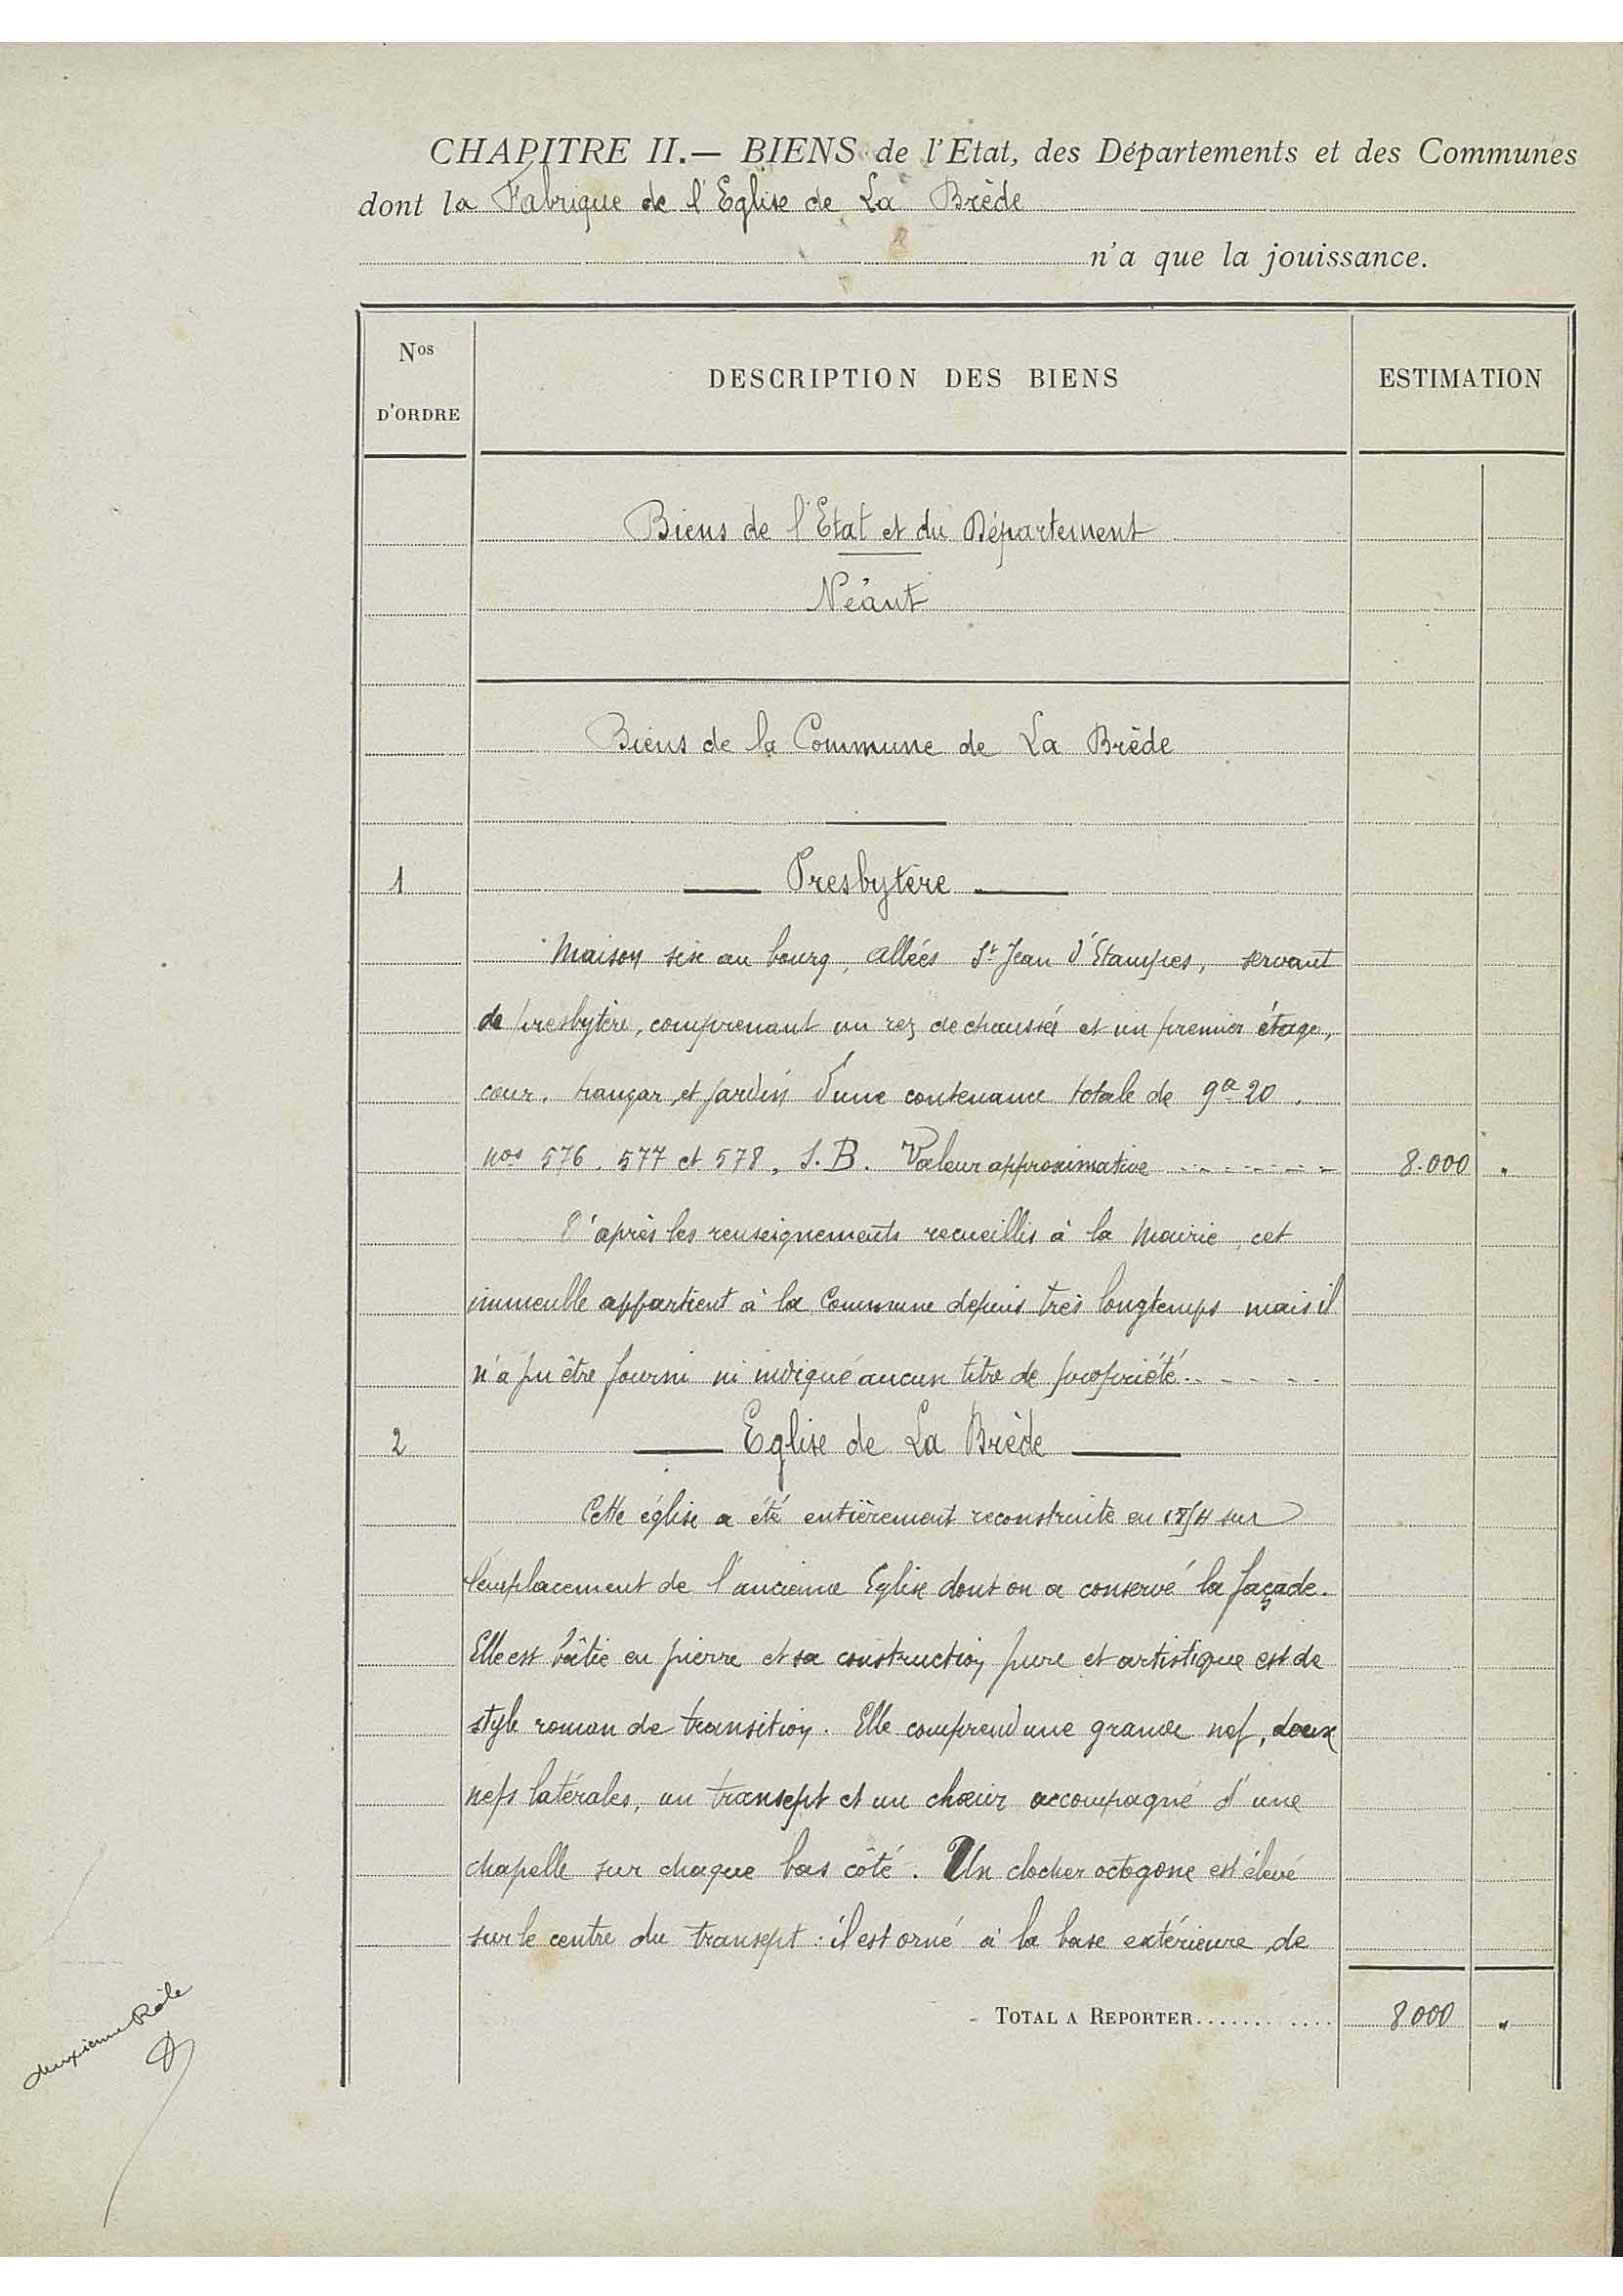 CHAPITRE II.— BIENS de l'Etat, des Départements et des Communes
dont la Fabrique de l'Eglise de La Brède
n'a que la jouissance.
Nos D'ORDRE
DESCRIPTION DES BIENS
ESTIMATION
Biens de l'Etat et du Département
Néant
Biens de la Commune de La Brède
1 Presbytère
Maison sise au bourg, allées St Jean d'Etampes, servant
de presbytère, comprenant un rez de chaussée et un premier étage,
cour, et jardin d'une contenance totale de 9a 20.
nos 576. 577 et 578, S.B. Valeur approximative - - - - - - - 8.000 "
D'après les renseignements recueillis à la Mairie, cet
immeuble appartient à la Commune depuis très longtemps mais il
n'a pu être fourni ni indiqué aucun titre de propriété. - - - -
2 Eglise de La Brède
Cette église a été entièrement reconstruite en sur
l'emplacement de l'ancienne Eglise dont on a conservé la façade.
Elle est bâtie en pierre et sa construction pure et artistique est de
style roman de transition. Elle comprend une grande nef, deux
nefs latérales, un transept et un chœur accompagné d'une
chapelle sur chaque bas côté. Un clocher octogone est élevé
sur le centre du transept : il est orné à la base extérieure, de
TOTAL A REPORTER........... 8000 "
deuxième Rôle